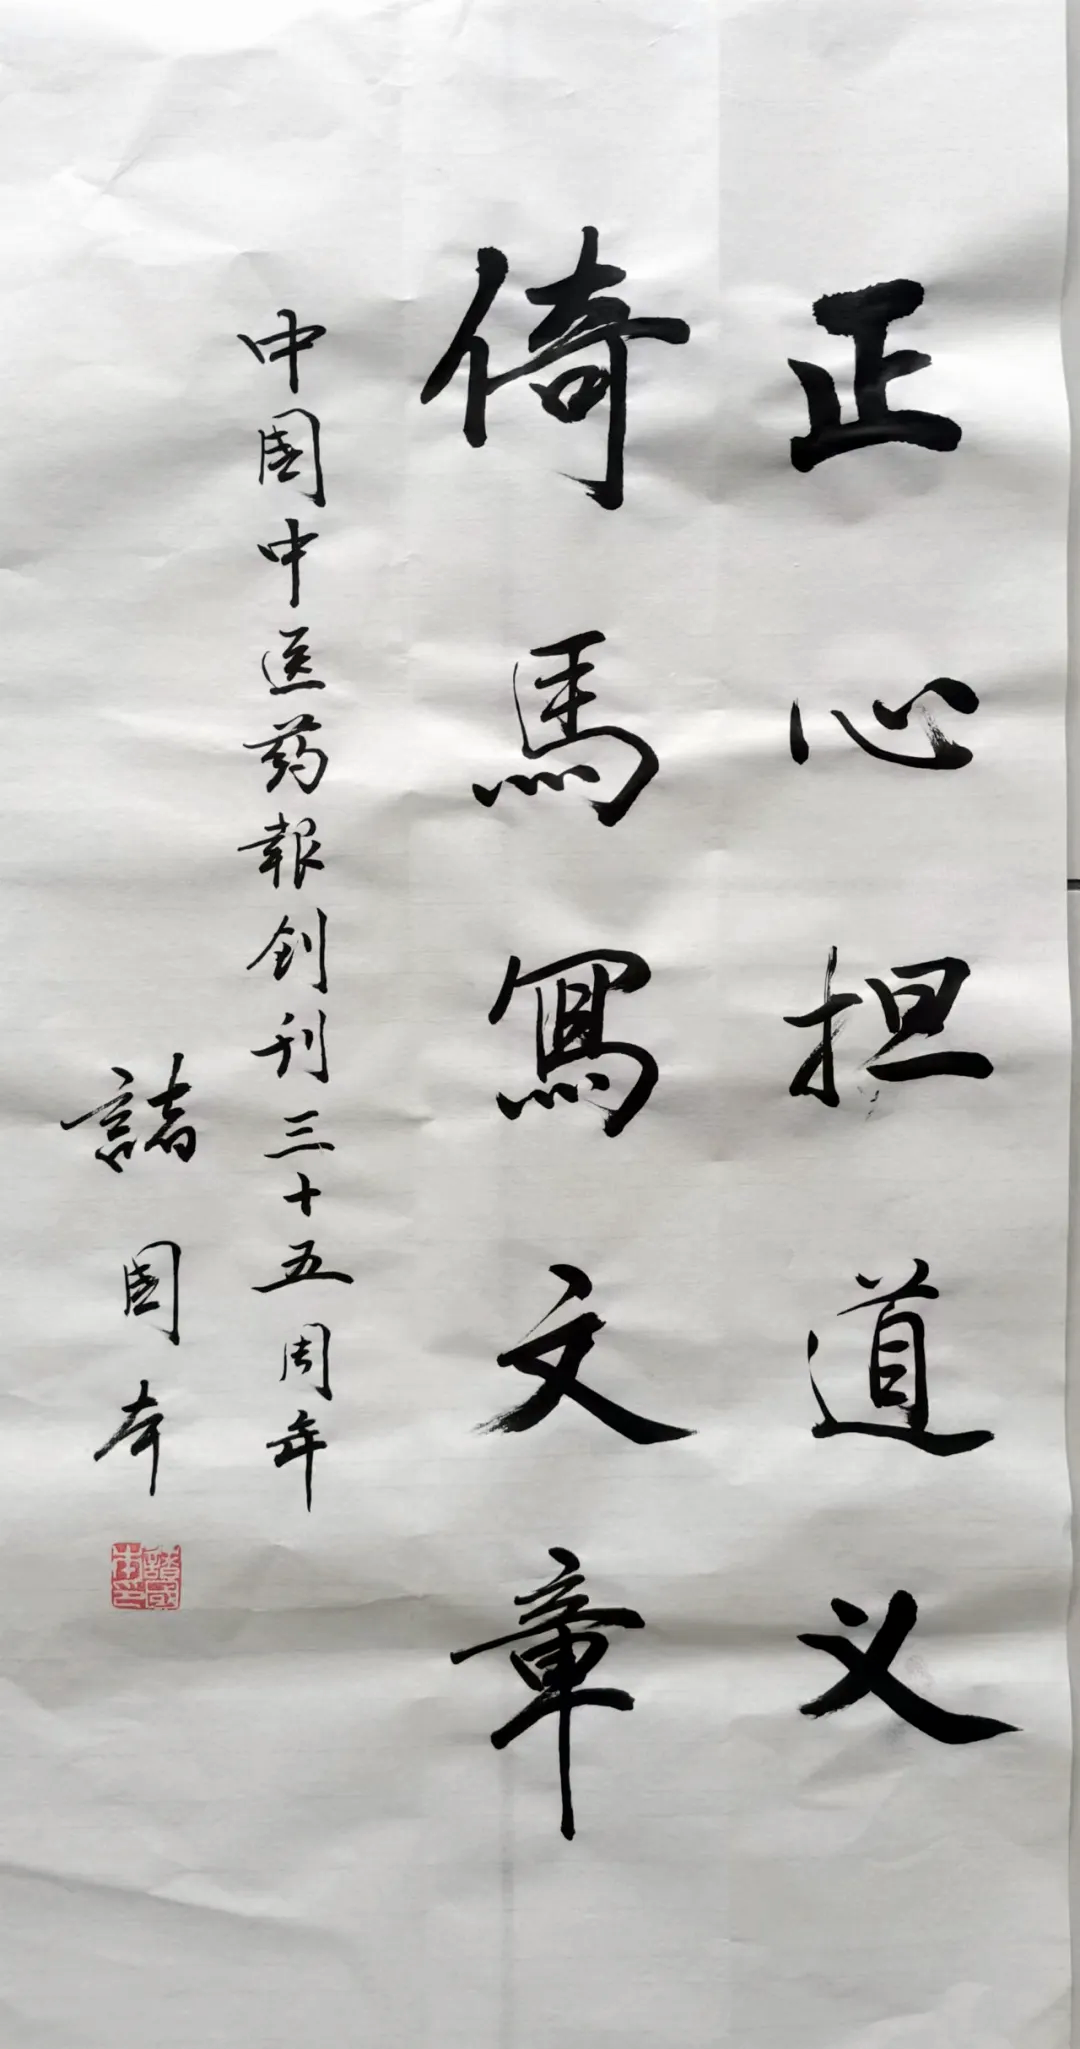 正心担道义
倚馬寫文章
中国中医药報創刊三十五周年
諸国本
諸國本印